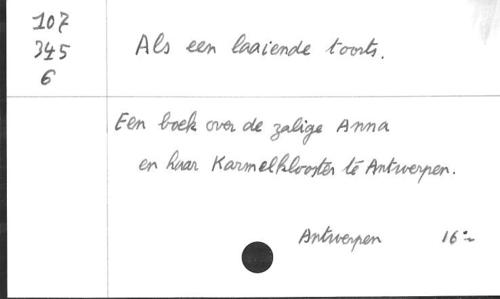 107
345
6
Als een laaiende toorts.
Een boek over de zalige Anna
en haar Karmelklooster te Antwerpen.
Antwerpen 16:~